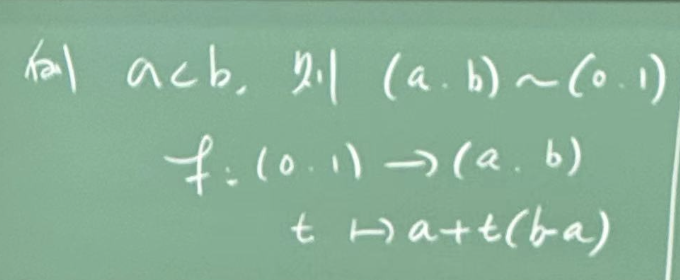 例 a<b, 则 (a.b)~(0.1)
f:(0.1)→(a.b)
t↦a+t(b-a)